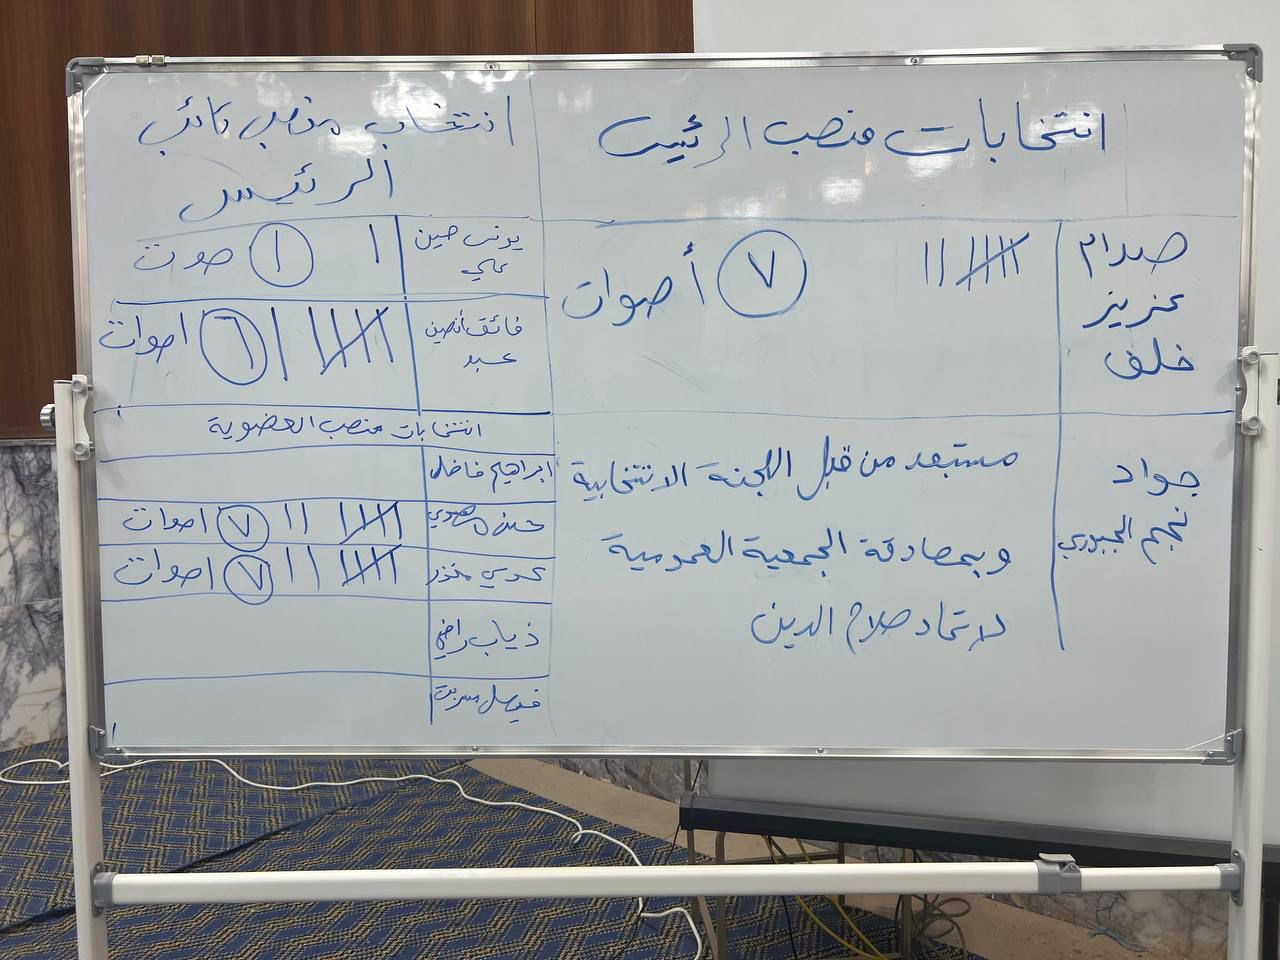 انتخابات منصب الرئيس
صدام
عزيز
خلف
٧ أصوات
جواد
نجم الجبوري
مستبعد من قبل اللجنة الانتخابية
وبمصادقة الجمعية العمومية
لاتحاد صلاح الدين
انتخاب منصب نائب
الرئيس
يونس حسين
علي
١ ١ صوت
فائق أنصيف
عبد
٦ اصوات
انتخابات منصب العضوية
ابراهيم فاضل
حسن مهدي ٧ اصوات
عدي منذر ٧ اصوات
ذياب راضي
فيصل